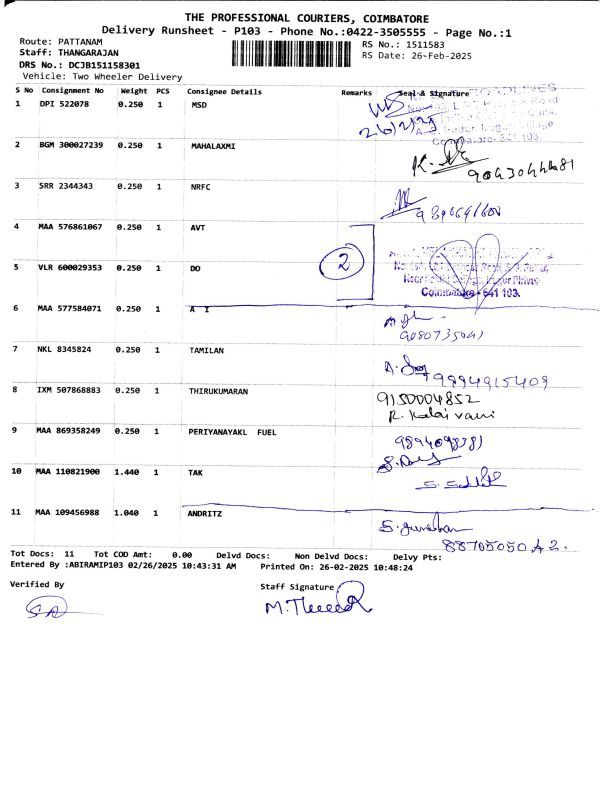 THE PROFESSIONAL COURIERS, COIMBATORE
Delivery Runsheet - P103 - Phone No.:0422-3505555 - Page No.:1
Route: PATTANAM
RS No.: 1511583
Staff: THANGARAJAN
RS Date: 26-Feb-2025
DRS No.: DCJB151158301
Vehicle: Two Wheeler Delivery
S No Consignment No Weight PCS Consignee Details Remarks Seal & Signature
1 DPI 522078 0.250 1 MSD
2 BGM 300027239 0.250 1 MAHALAXMI
3 SRR 2344343 0.250 1 NRFC
4 MAA 576861067 0.250 1 AVT
2
5 VLR 600029353 0.250 1 DO
Coimbatore - 641 103.
6 MAA 577584071 0.250 1 A I
9080735041
7 NKL 8345824 0.250 1 TAMILAN
9994915409
8 IXM 507868883 0.250 1 THIRUKUMARAN
9150004852
R. Kalaivani
9 MAA 869358249 0.250 1 PERIYANAYAKL FUEL
9894098381
10 MAA 110821900 1.440 1 TAK
11 MAA 109456988 1.040 1 ANDRITZ
Tot Docs: 11 Tot COD Amt: 0.00 Delvd Docs: Non Delvd Docs: Delvy Pts:
Entered By :ABIRAMIP103 02/26/2025 10:43:31 AM Printed On: 26-02-2025 10:48:24
Verified By
Staff Signature